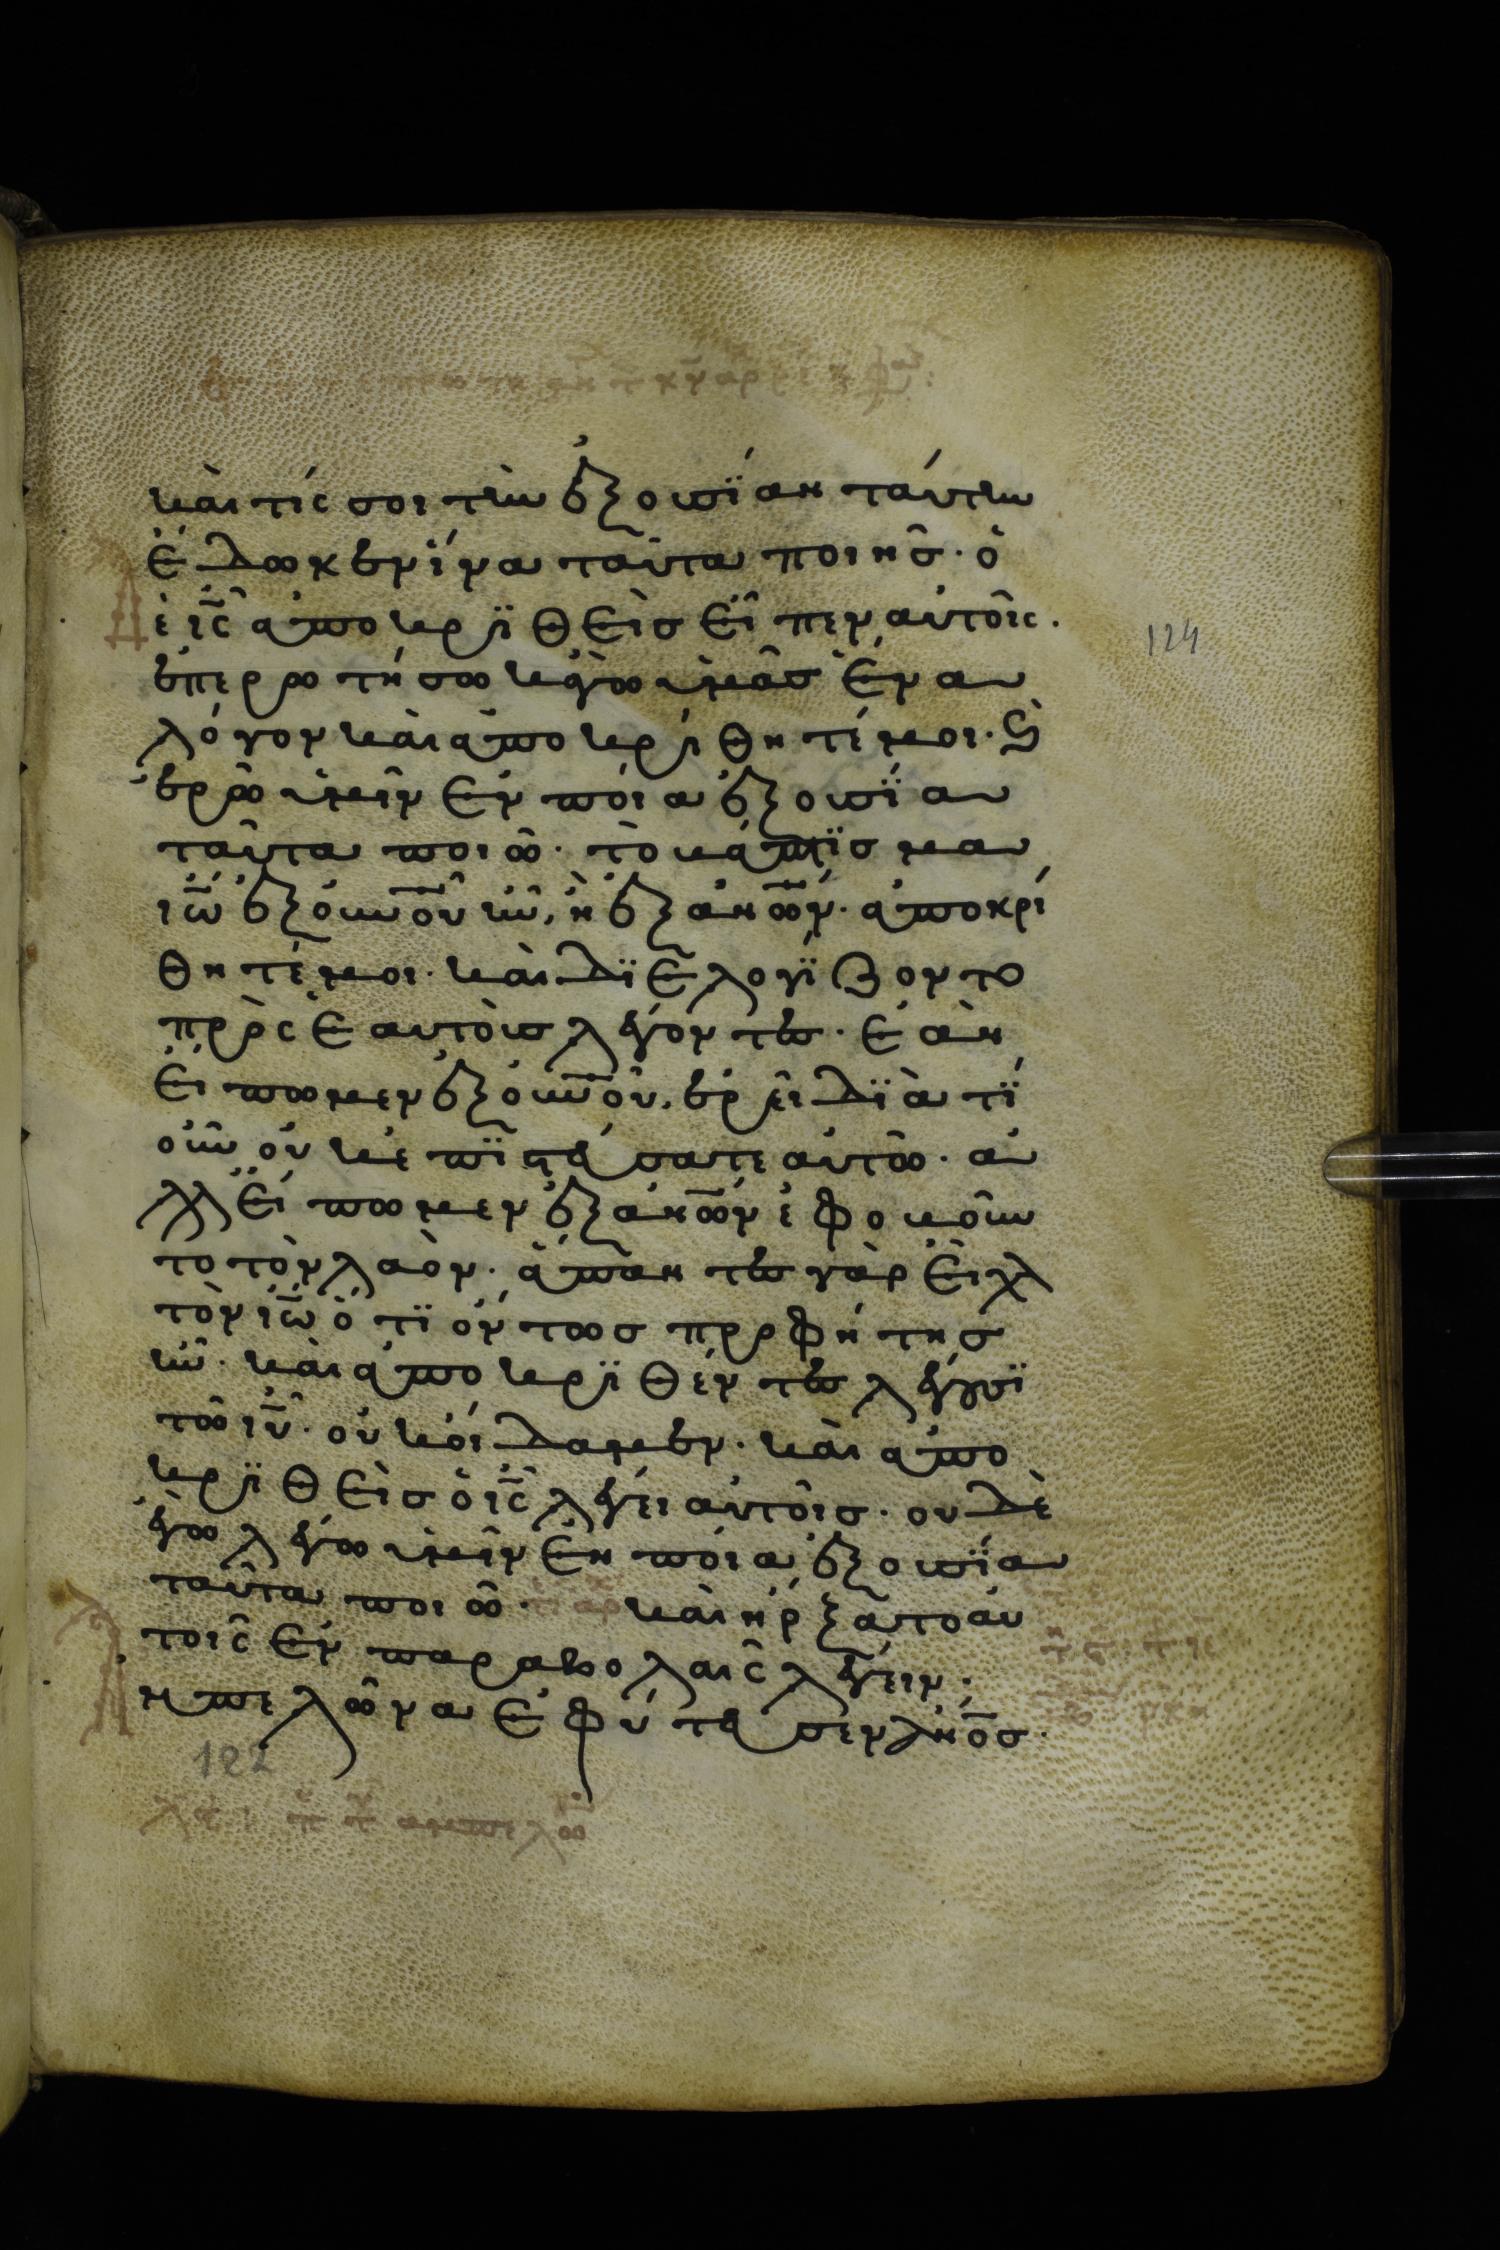 καὶ τίς σοι τὴν ἐξουσΐαν ταύτην
ἔδωκεν ἵνα ταῦτα ποιῆς· ὁ
δὲ ἰ̅ς̅ ἀποκρϊθεὶς εἶπεν αὐτοῖς·
ἐπερωτήσω κἀγὼ ὑμᾶς ἕνα
λόγον καὶ ἀποκρίθητέ μοι· ϗ
ἐρῶ ὑμῖν ἐν ποία ἐξουσΐα
ταῦτα ποιῶ· τὸ βάπτϊσμα
ἰ̅ω̅ ἐξ ο̅υ̅ν̅ο̅υ̅ ἦν, ἢ ἐξ α̅ν̅ω̅ν̅· ἀποκρί
θητέ μοι· καὶ δϊελογΐζοντο
πρὸς ἑαυτοὺς λέγοντες· ἐὰν
εἴπωμεν ἐξ ο̅υ̅ν̅ο̅υ̅, ἐρεῖ δϊὰ τΐ
οὖν οὐκ ἐπϊστεύσατε αὐτῶ· ἀ
λλ εἴπωμεν ἐξ α̅ν̅ω̅ν̅ ἐφοβοῦν
το τὸν λαὸν· ἅπαντες γὰρ εἶχ
τὸν ἰ̅ω̅ ὅτϊ ὄντως προφήτης
ἦν· καὶ ἀποκρϊθέντες λέγουσϊ
τῶ ι̅υ̅· οὐκ οἴδαμεν· καὶ ἀπο
κρϊθεὶς ὁ ι̅ς̅ λέγει αὐτοῖς· οὐδὲ
ἐγὼ λέγω ὑμῖν ἐν ποία ἐξουσΐα
ταῦτα ποιῶ· καὶ ἤρξατο αὐ
τοῖς ἐν παραβολαῖς λέγειν·
ἀμπελῶνα ἐφύτευσεν α̅ν̅ο̅ς̅·
124
122